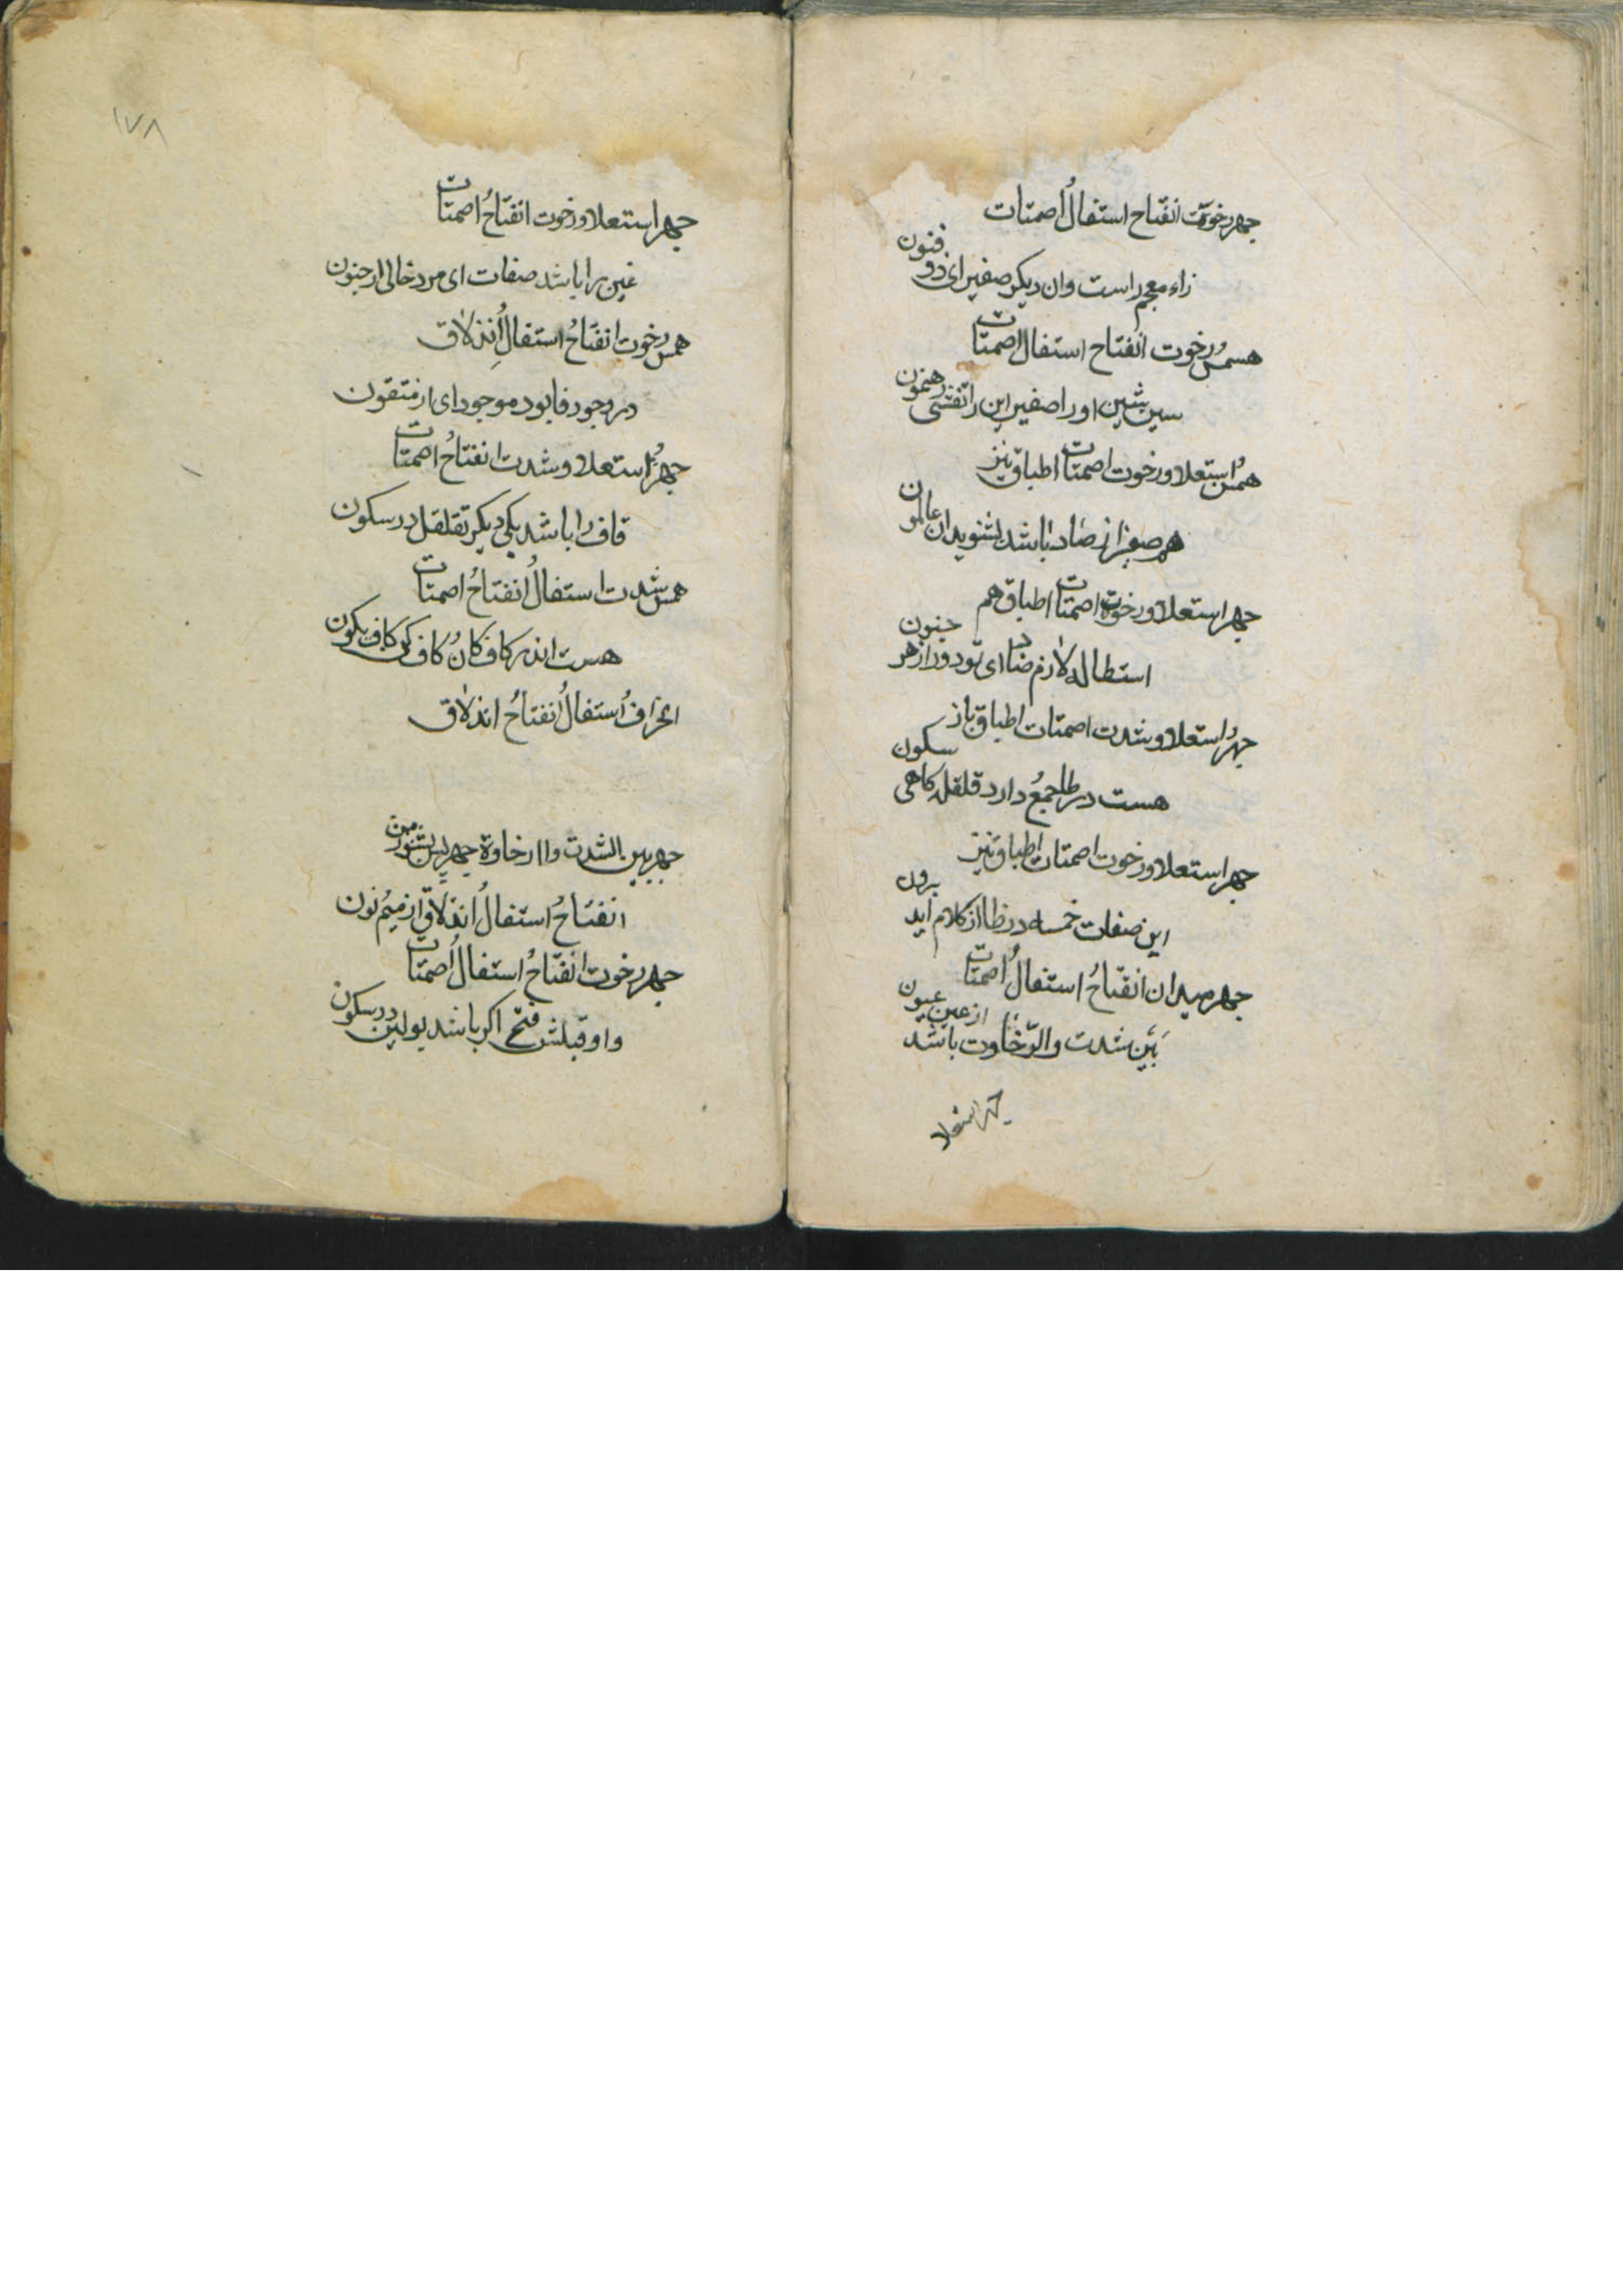 جهر رخوت انفتاح استفالُ اصمتات
زاء معجم راست وان دیکر صفیر ای ذو فنون
همسُ رخوت انفتاح استفال اصمتات
سین شین او را صفیر این را تفشی رهنمون
همسُ استعلا و رخوت اصمتات اطباق نیز
هم صفیر از صاد باشد بشنوید ان عالمون
جهر استعلا و رخوت اصمتات اطباق هم
استطاله لازم ضاد ای تو دور از هر جنون
جهرُ استعلا و شدت اصمتات اطباق باز
هست در طا جمع دارد قلقله کاهی سکون
جهر استعلا و رخوت اصمتات اطباق نیز
این صفات خمسه در ظا از کلام اید برون
جهر میدان انفتاحُ استفالُ اصمتات
بَیْن شدت والرّخاوت باشد از عین عیون
جهر استعلا
١٧٨
جهر استعلا و رخوت انفتاحُ اصمتات
غین را باشد صفات ای مرد خالی از جنون
همس رخوت انفتاحُ استفالُ انذلاق
در وجود فا بود موجود ای از متقون
جهرُ استعلا و شدت انفتاحُ اصمتات
قاف را باشد یکی دیکر تقلقل در سکون
همس شدت استفالُ انفتاحُ اصمتات
هست اندر کاف کانُ کاف کن کاف یکون
انحرافُ استفالُ انفتاحُ انذلاق
جهر بین الشدت واارخاوة جهر بین بشنو زمن
انفتاحُ استفالُ انذلاق از میمُ نون
جهر رخوت انفتاحُ استفالُ اصمتات
واو قبلش فتح اکر باشد بو لین در سکون